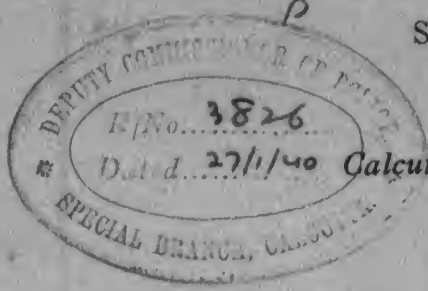 S
DEPUTY COMMISSIONER OF POLICE,
R/No. 3826
Dated 27/1/40
Calcut
SPECIAL BRANCH, CALCUTTA.